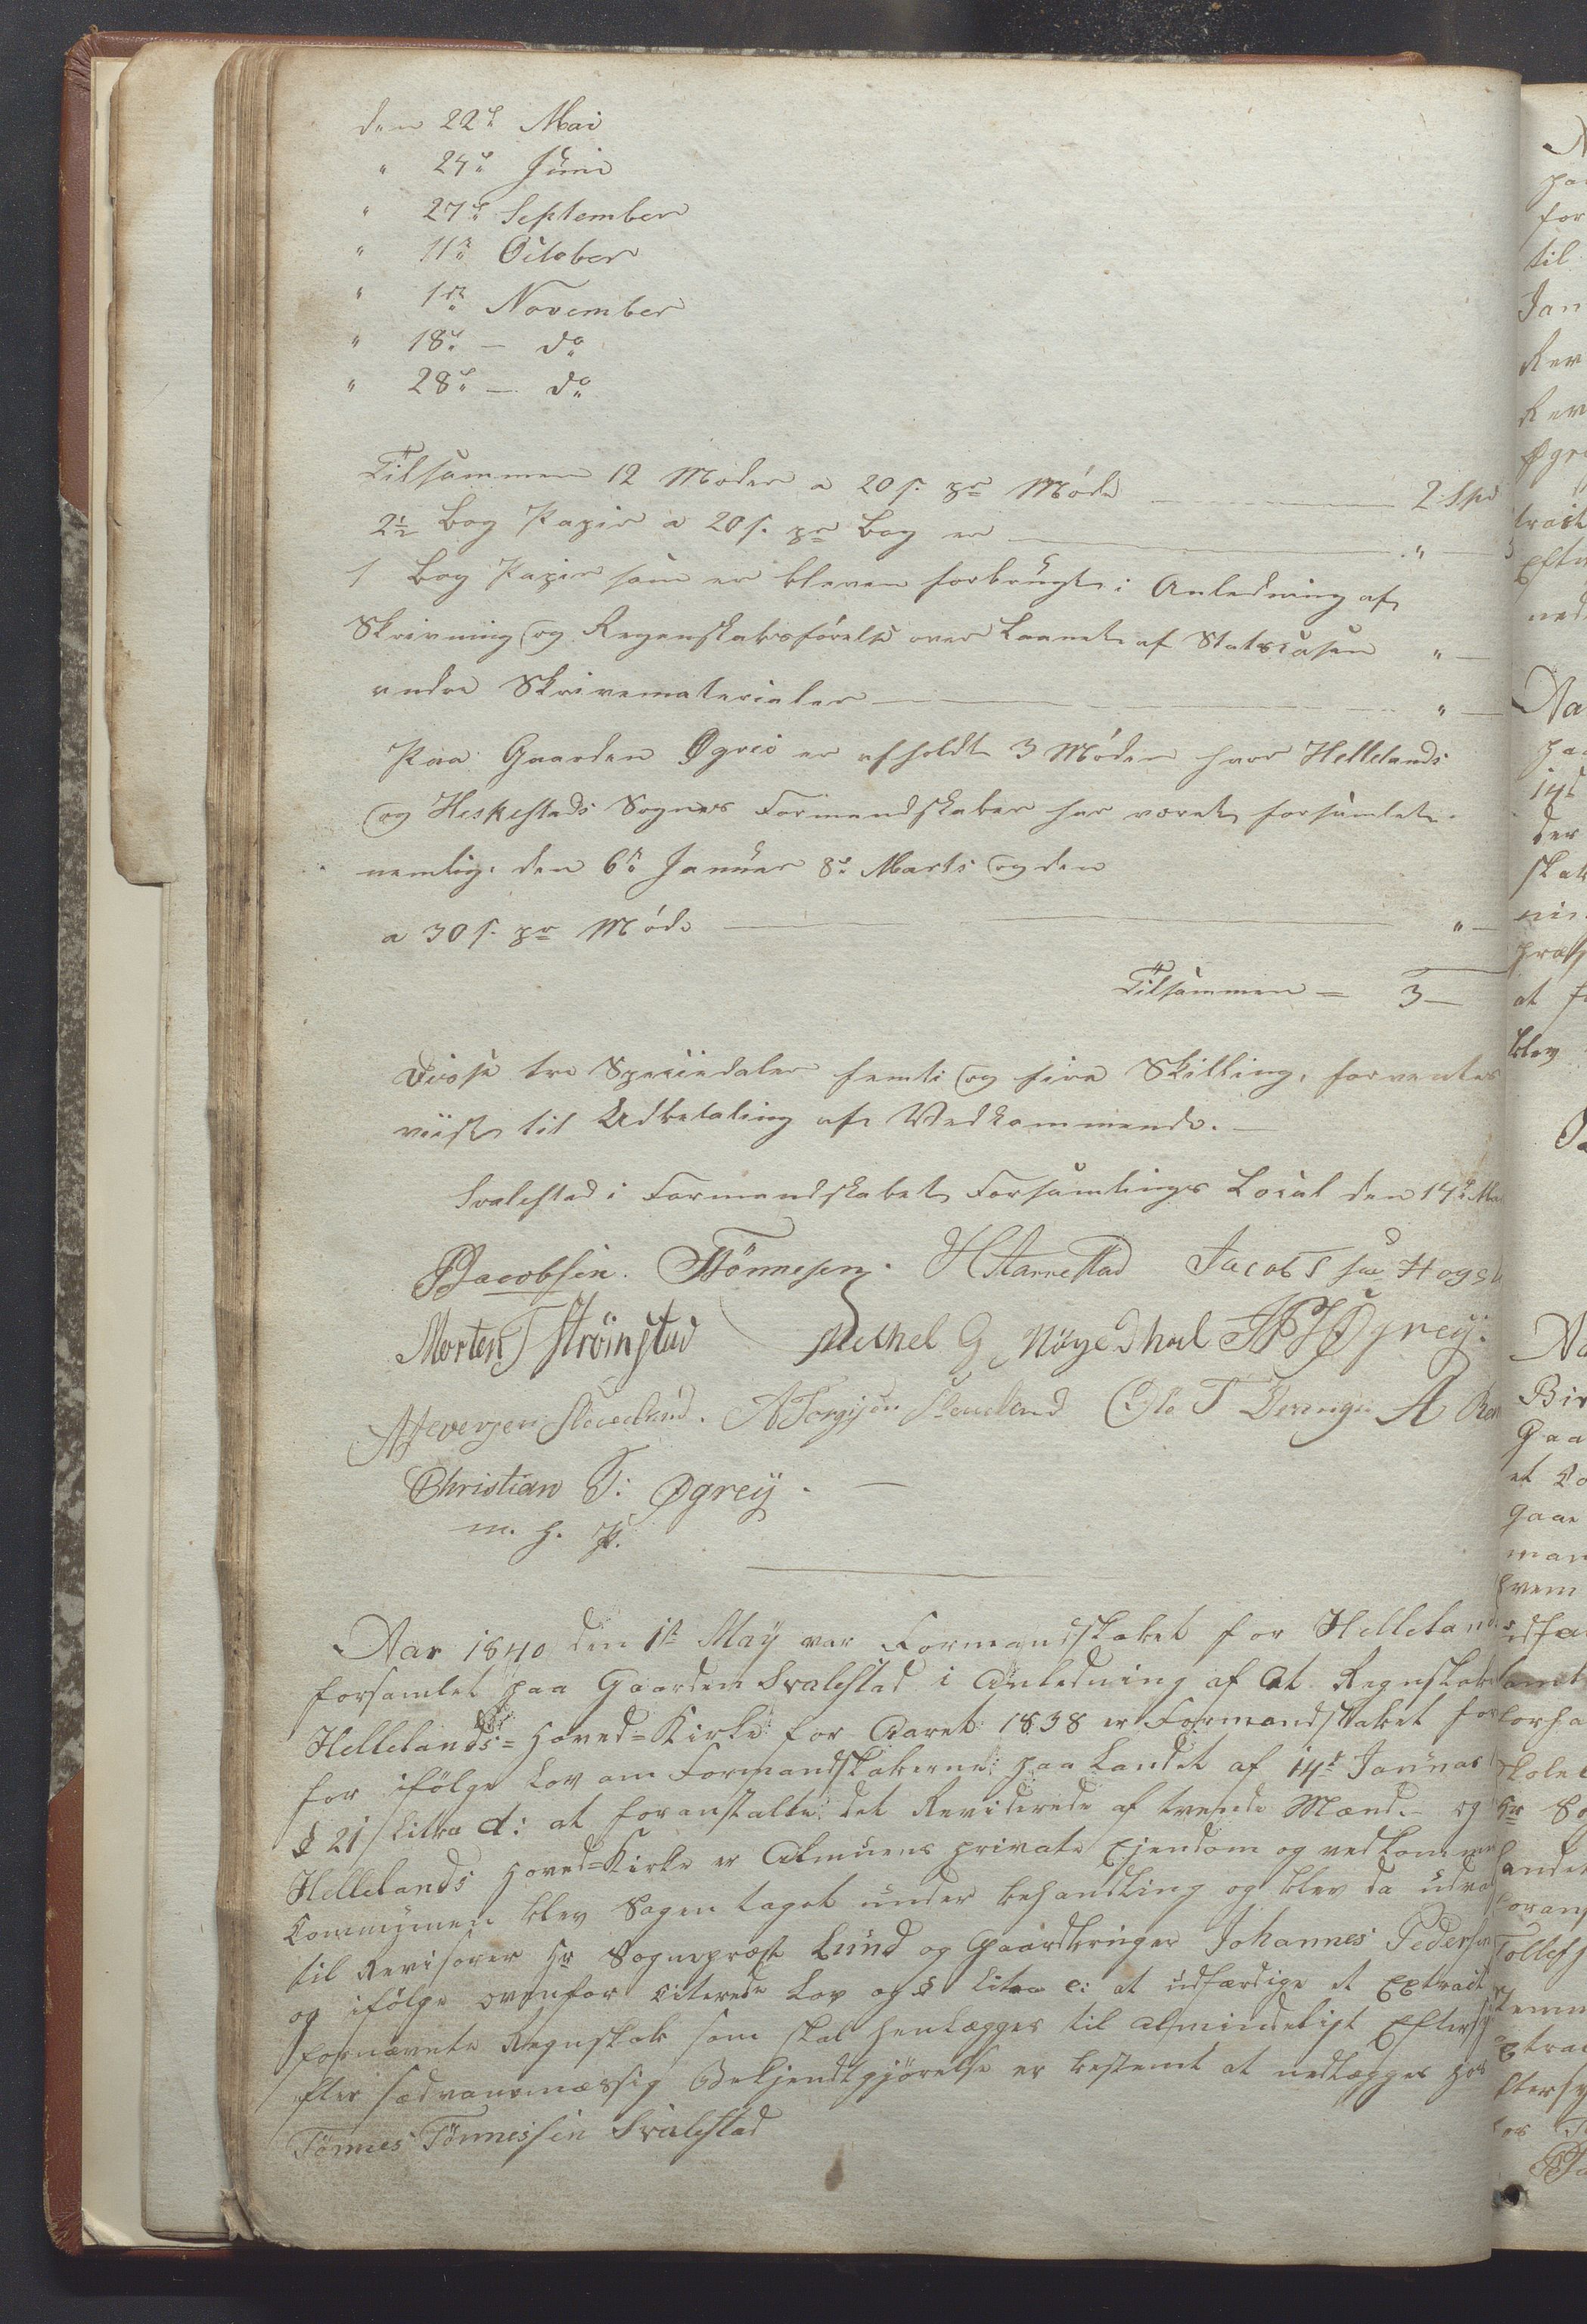 den 22de Mai
" 24de Juni
" 27de September
" 11te October
" 1ste November
" 18de — do
" 28de — do
Tilsammen 12 Møder a 20 s. pr Møde — 2 Spd
2½ Bog Papir a 20 s. pr Bog er — "
1 Bog Papir som er bleven forbrugt i Anledning af
Skrivning og Regenskabsførelse over Laanet af Statscasen "
andre Skrivematerialer — "
Paa Gaarden Øgreid er afholdt 3 Møder hvor Hellelands
og Heskestads Sognes Formandskaber har været forsamlet
nemlig: den 6te Januar 8de Marts og den
a 30 s. pr Møde — "
Tilsammen = 3 —
Disse tre Speciedaler femti og fire Skilling, forventes
viist til Udbetaling af Vedkommende. —
Svalestad i Formandskabets Forsamlings Local den 14de
PJacobsen. TTönnesen. HStamestad Jacob T Hoge
Morten T Ströinstad Mechel G Nöyedhal JPJØgreÿ:
ASeversen Skeveland. ATorgisen Skeveland Ole T A
Christian T: Øgreÿ. —
m. h. P.
Aar 1840 den 1ste Maÿ var Formandskabet for Helleland
forsamlet paa Gaarden Svalestad i Anledning af At Regnskab
Hellelands = Hoved = Kirke for Aaret 1838 er Formandskabet for
for ifölge Lov om Formandskaberne paa Landet af 14de Januar
§ 21 Litra d: at foranstalte det Reviderede af tvende Mænd. og
Hellelands Hoved=Kirke er Almuens private Ejendom og vedkommer
Commynen blev Sagen taget under behandling og blev da udva
til Revisorer Hr Sognepræst Lund og Gaardbruger Johannes Pedersen
og ifölge ovenfor citerede Lov og § Litra e: at udfærdige et Extract
fornævnte Regnskab som skal henlægges til almindeligt Eftersyn
efter sædvansmæssig Bekjendtgjörelse er bestemt at nedlægges hos
Tönnes Tönnessen Svalestad